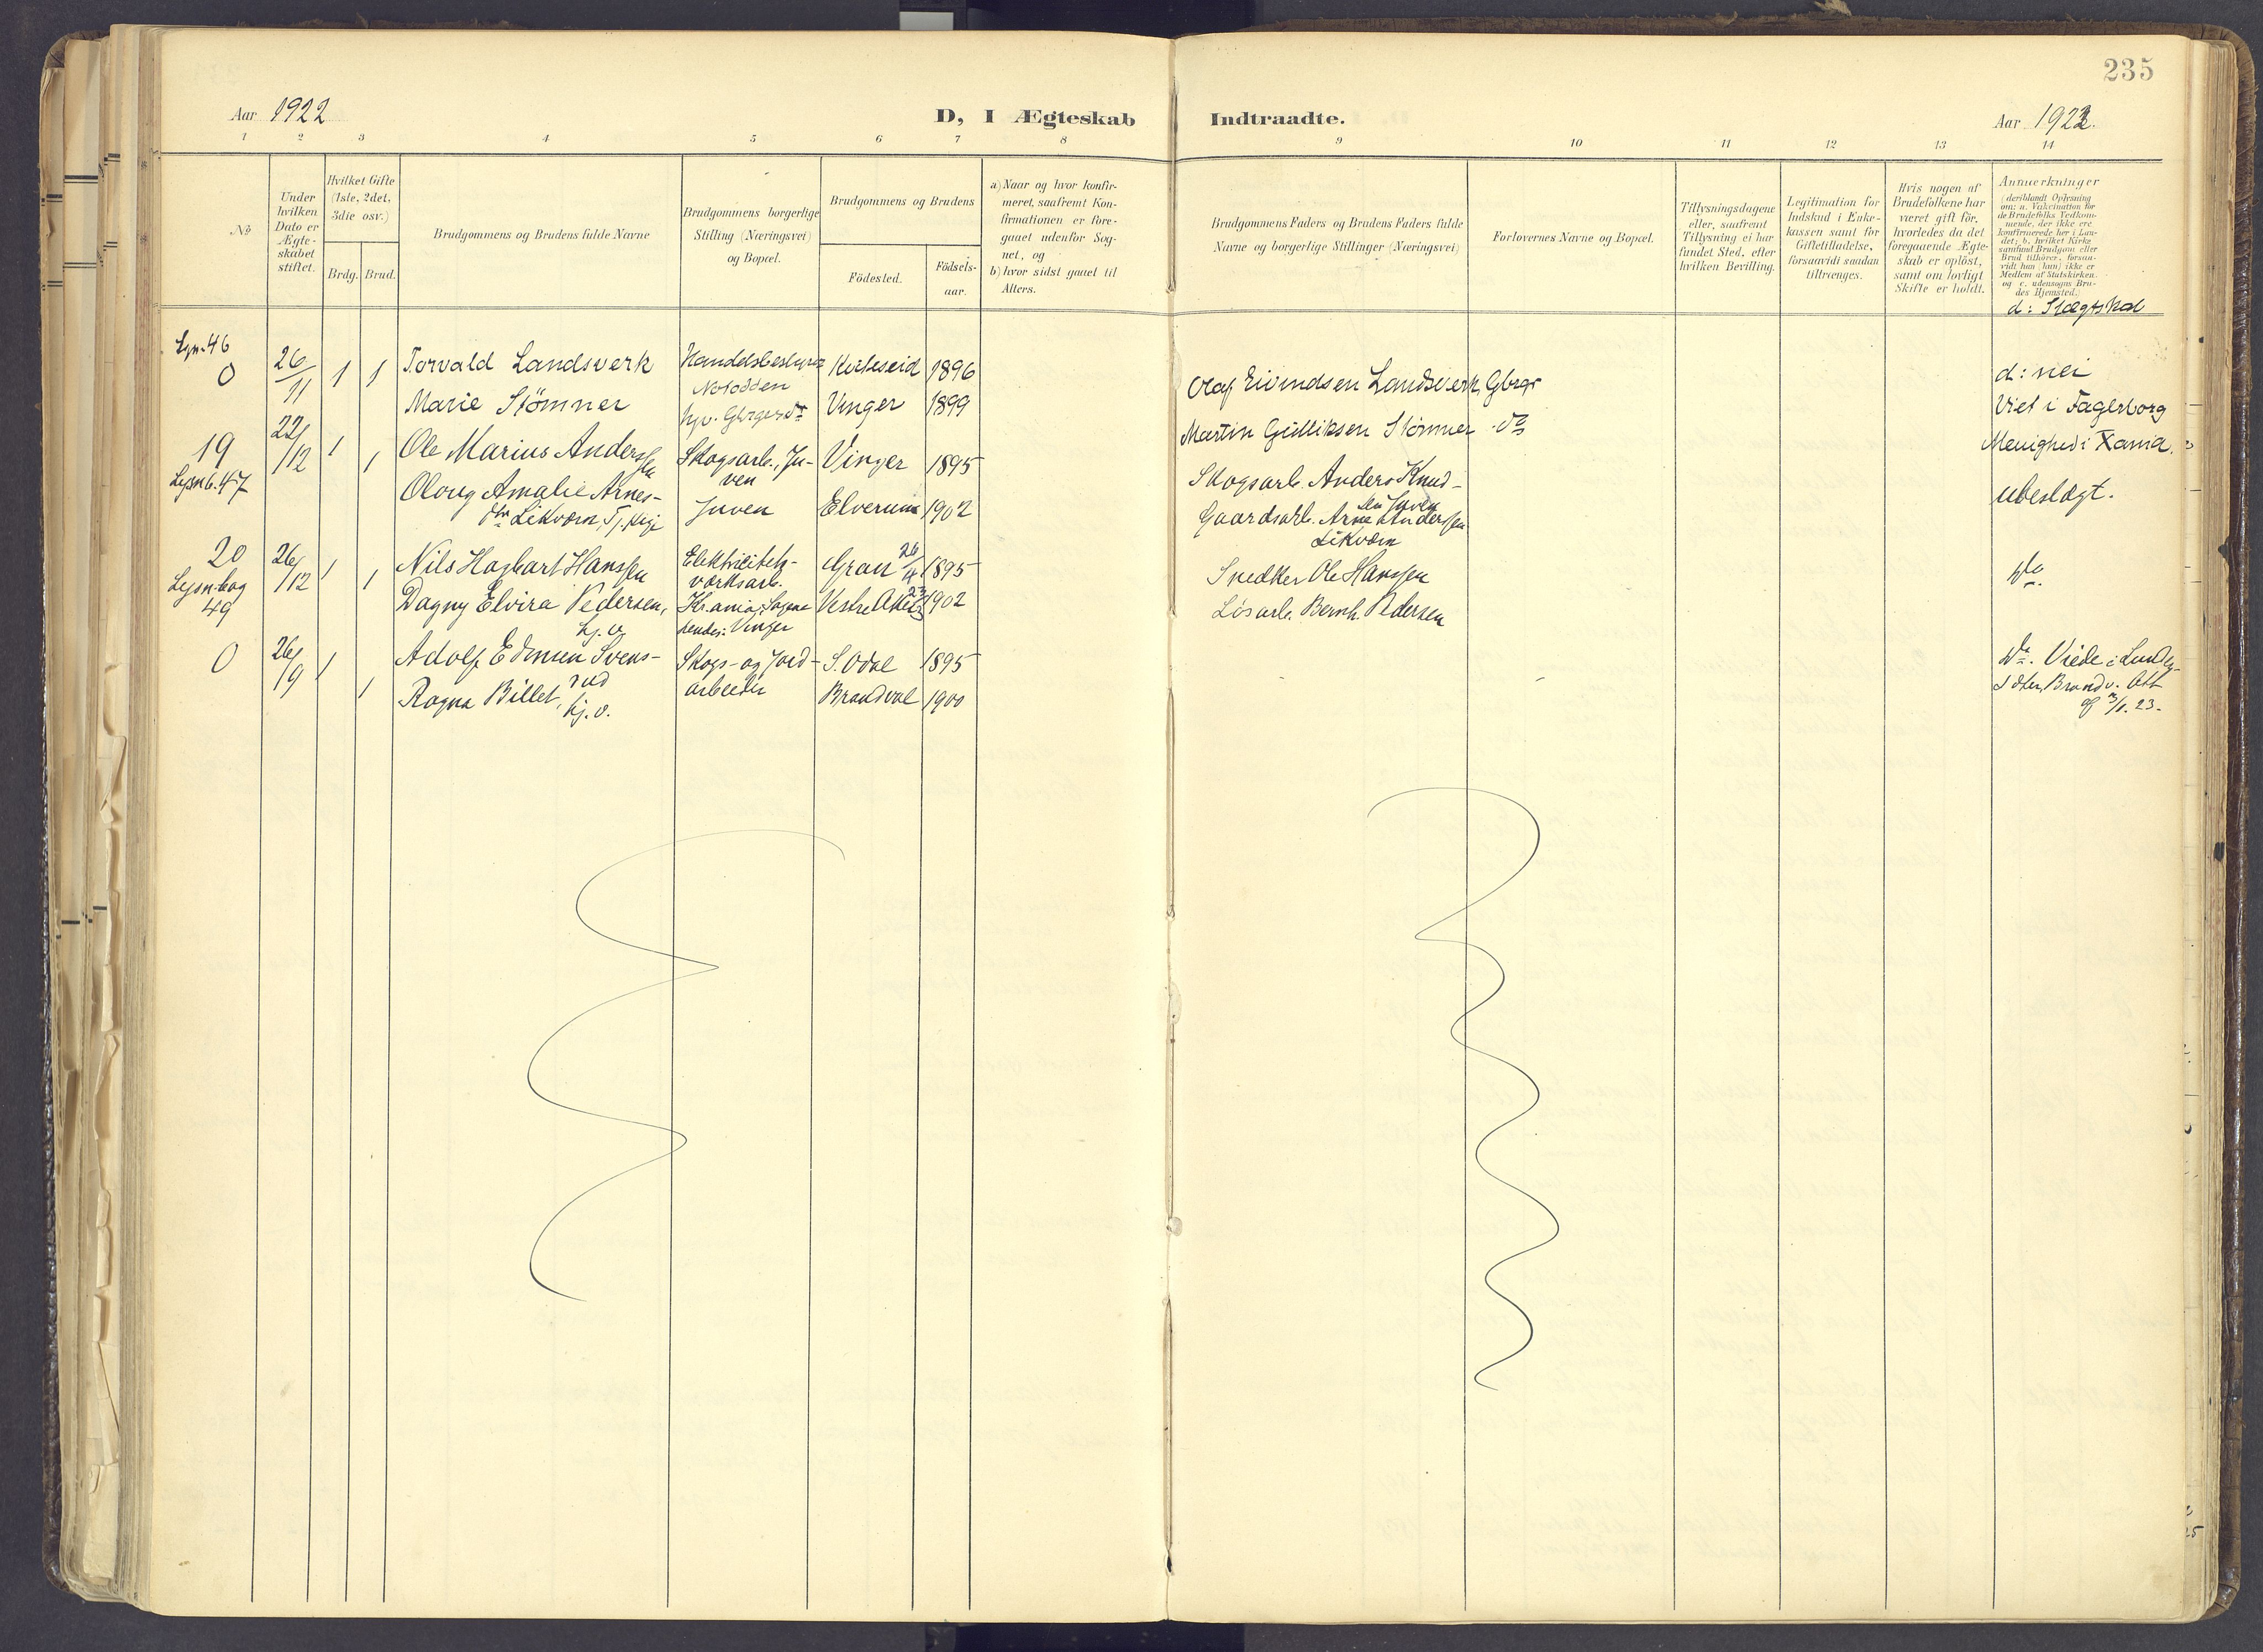 235
Aar 1922
D, I Ægteskab
Indtraadte.
Aar 1922.
1 2 3 4 5 6 7 8 9 10 11 12 13 14
No
Under hvilken Dato er Ægteskabet stiftet.
Hvilket Gifte (1ste, 2det, 3die osv.)
Brdg. Brud.
Brudgommens og Brudens fulde Navne
Brudgommens borgerlige Stilling (Næringsvei) og Bopæl.
Brudgommens og Brudens
Födested.
Födselsaar.
a) Naar og hvor konfirmeret, saafremt Konfirmationen er foregaaet udenfor Sognet, og
b) hvor sidst gaaet til Alters.
Brudgommens Faders og Brudens Faders fulde Navne og borgerlige Stillinger (Næringsvei)
Forlovernes Navne og Bopæl.
Tillysningsdagene eller, saafremt Tillysning ei har fundet Sted, efter hvilken Bevilling.
Legitimation for Indskud i Enkekassen samt for Giftetilladelse, forsaavidt saadan tiltrænges.
Hvis nogen af Brudefolkene har været gift för, hvorledes da det foregaaende Ægteskab er oplöst, samt om lovligt Skifte er holdt.
Anmerkninger
(deriblandt Oplysning om: a. Vakcination for de Brudefolks Vedkommende, der ikke ere konfirmerede her i Landet; b. hvilket Kirkesamfund Brudgom eller Brud tilhörer, forsaavidt han (hun) ikke er Medlem af Statskirken. og c. udensogns Brudes Hjemsted.)
d: Slægtskab
Lysn. 46
0 26/11 1 1 Torvald Landsverk Handelsbestyrer Notodden Kviteseid 1896 Olaf Eivindsen Landsverk, Gbrgr d: nei
Marie Stömner hjv. Gbrgers dr Vinger 1899 Martin Gulliksen Stömner do Viet i Fagerborg
Menighed i Xania.
19 22/12 1 1 Ole Marius Anderssen Skogsarb., Juven Vinger 1895 Skogsarb. Anders Knudsen Juven ubeslægt.
Lysnb. 47 Oloug Amalie Arnesdtr Likværn, Tj.pige Juven Elverum 1902 Gaardsarb. Arne Anderssen Likværn
20 26/12 1 1 Nils Hagbart Hanssen Elektricitetsværksarb. Gran 26/4 1895 Snedker Ole Hanssen do
Lysn.bog 49 Dagny Elvira Pedersen, hj.v. Kr.ania, Sagene hendes: Vinger Vestre Aker 1902 Lösarb. Bernh. Pedersen
0 26/9 1 1 Adolf Edmun Svensrud Skogs- og Jordarbeider S. Odal 1895 do. Viede i Lundersæter, Brandv. Att
Ragna Billet, hj.v. Brandval 1900 af 3/1. 23.